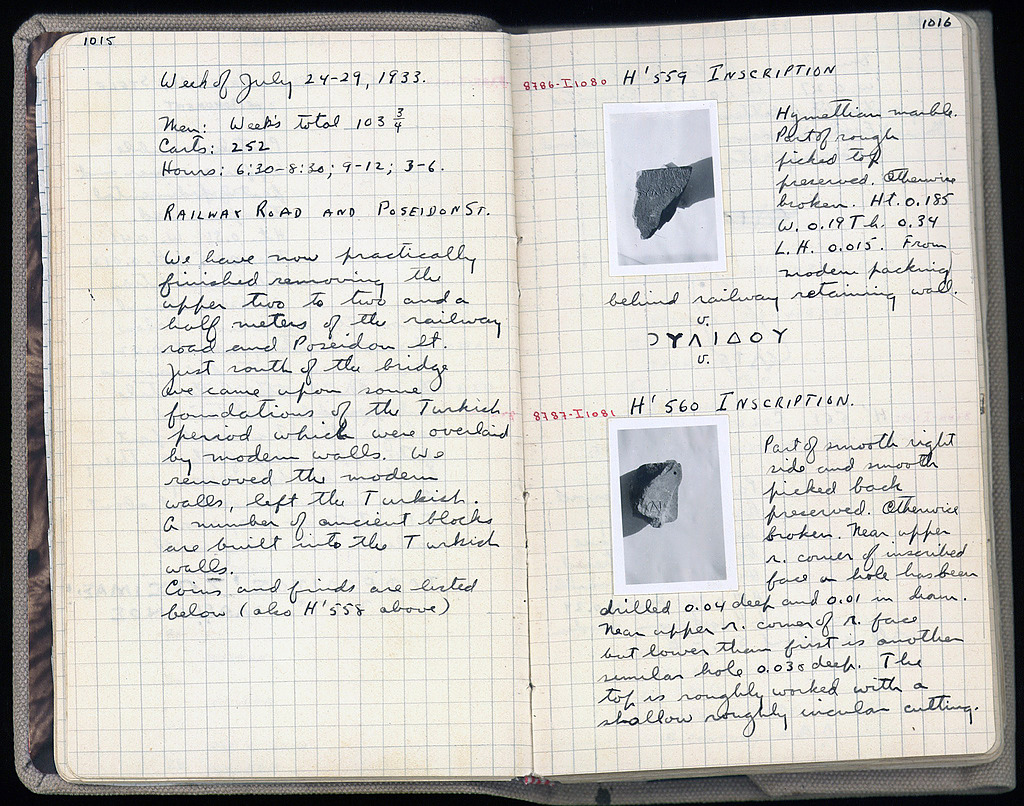 1015
Week of July 24-29, 1933.
Men: Week's total 103 3/4
Carts: 252
Hours: 6:30-8:30; 9-12; 3-6.
RAILWAY ROAD AND POSEIDON ST.
We have now practically
finished removing the
upper two to two and a
half meters of the railway
road and Poseidon St.
Just south of the bridge
we came upon some
foundations of the Turkish
period which were overlaid
by modern walls. We
removed the modern
walls, left the Turkish.
A number of ancient blocks
are built into the Turkish
walls.
Coins and finds are listed
below (also H'558 above)
1016
8786-I1080 H'559 INSCRIPTION
Hymettian marble.
Part of rough
picked top
preserved. Otherwise
broken. Ht. 0.185
W. 0.19 Th. 0.34
L.H. 0.015. From
modern packing
behind railway retaining wall.
v.
ϽΥΛΙΔΟΥ
v.
8787-I1081 H'560 INSCRIPTION.
Part of smooth right
side and smooth
picked back
preserved. Otherwise
broken. Near upper
r. corner of inscribed
face a hole has been
drilled 0.04 deep and 0.01 in diam.
Near upper r. corner of r. face
but lower than first is another
similar hole 0.038 deep. The
top is roughly worked with a
shallow roughly circular cutting.